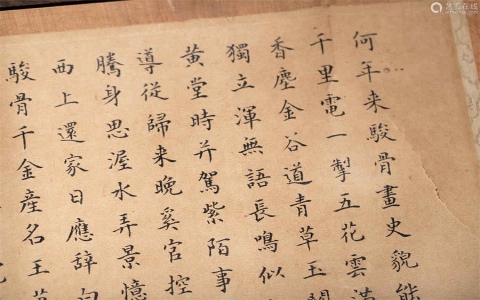 何年来駿骨畫史貌能
千里電一掣五花雲
香塵金谷道青草玉關
獨立渾無語長鳴似
黄堂時并駕紫陌事
導從歸来晚奚官控
騰身思渥水弄景憶
西上還家日應辭
駿骨千金産名王